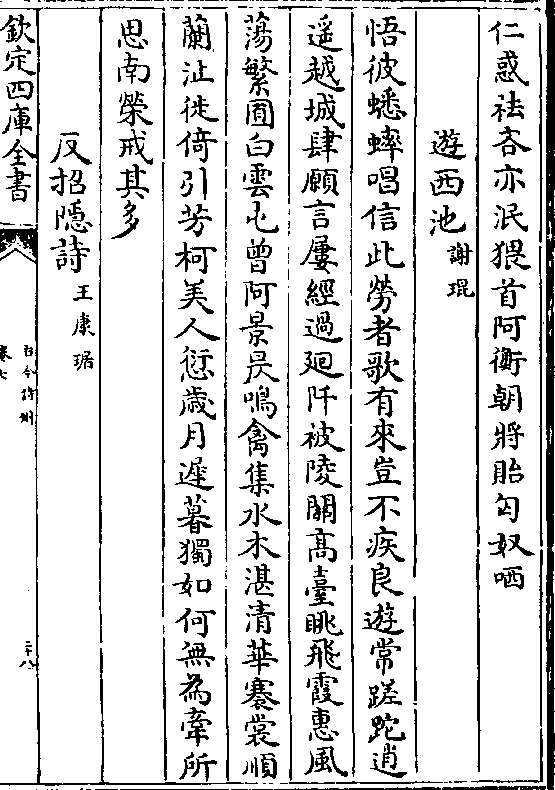 仁惑祛吝亦泯猥首阿衡朝將貽匈奴哂
遊西池 謝琨
悟彼蟋蟀唱信此勞者歌有來豈不疾良遊常蹉跎逍
遥越城肆願言屢經過廻阡被陵闕髙臺眺飛霞惠風
蕩繁囿白雲屯曾阿景昃鳴禽集水木湛清華褰裳順
蘭沚徙倚引芳柯美人愆歳月遲暮獨如何無為牽所
思南榮戒其多
反招隱詩 王康琚
欽定四庫全書
古今詩刪
卷七
二十八